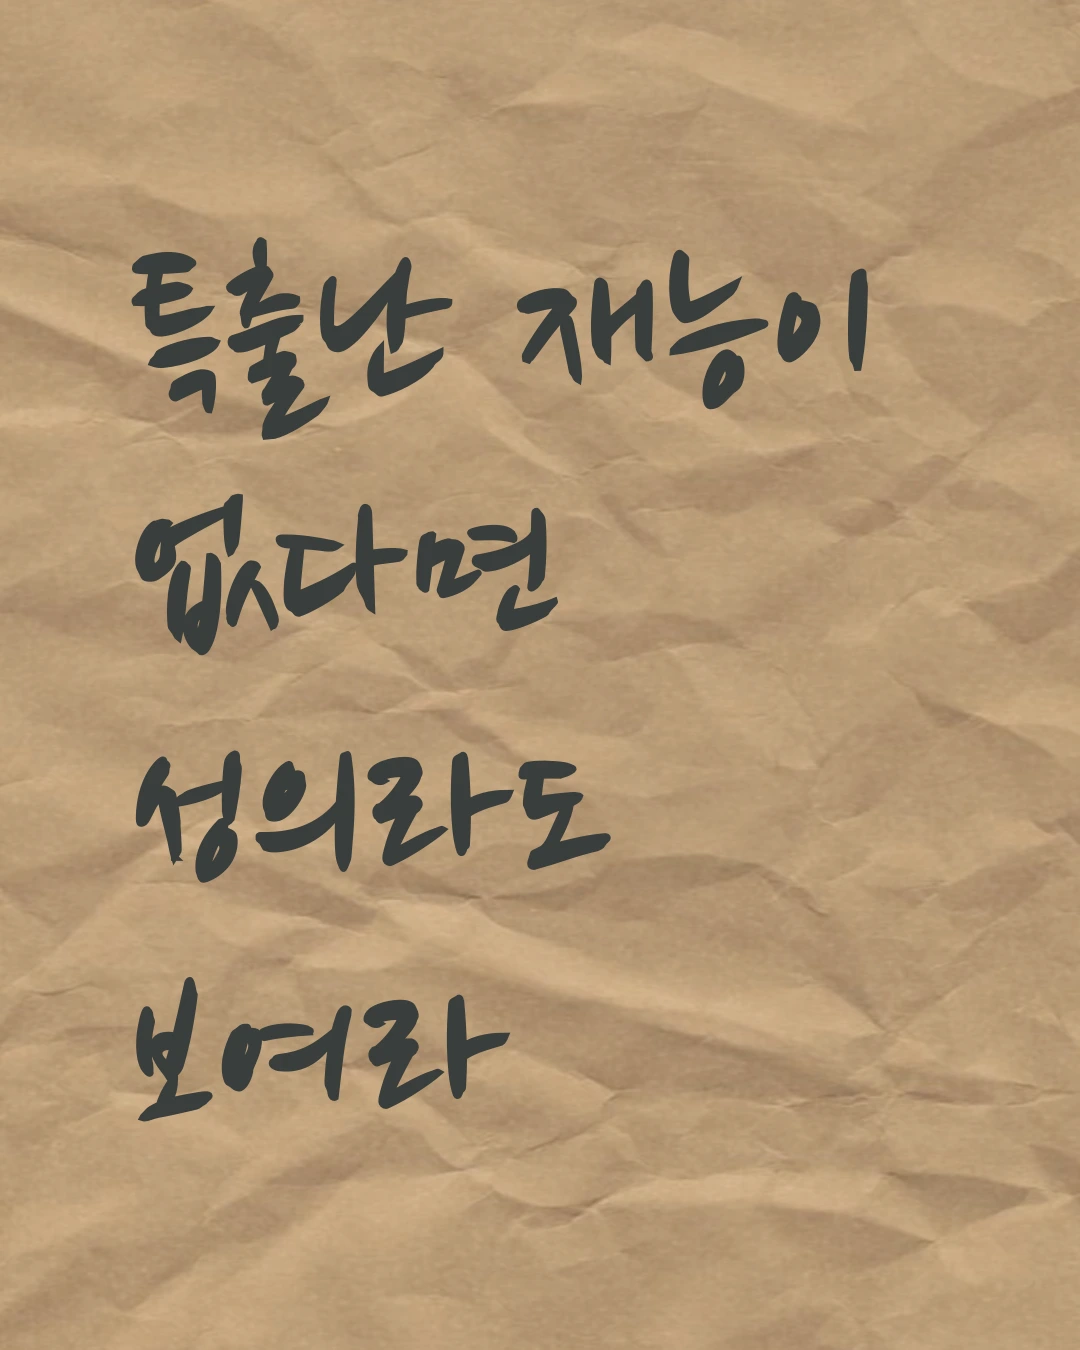 특출난 재능이
없다면
성의라도
보여라